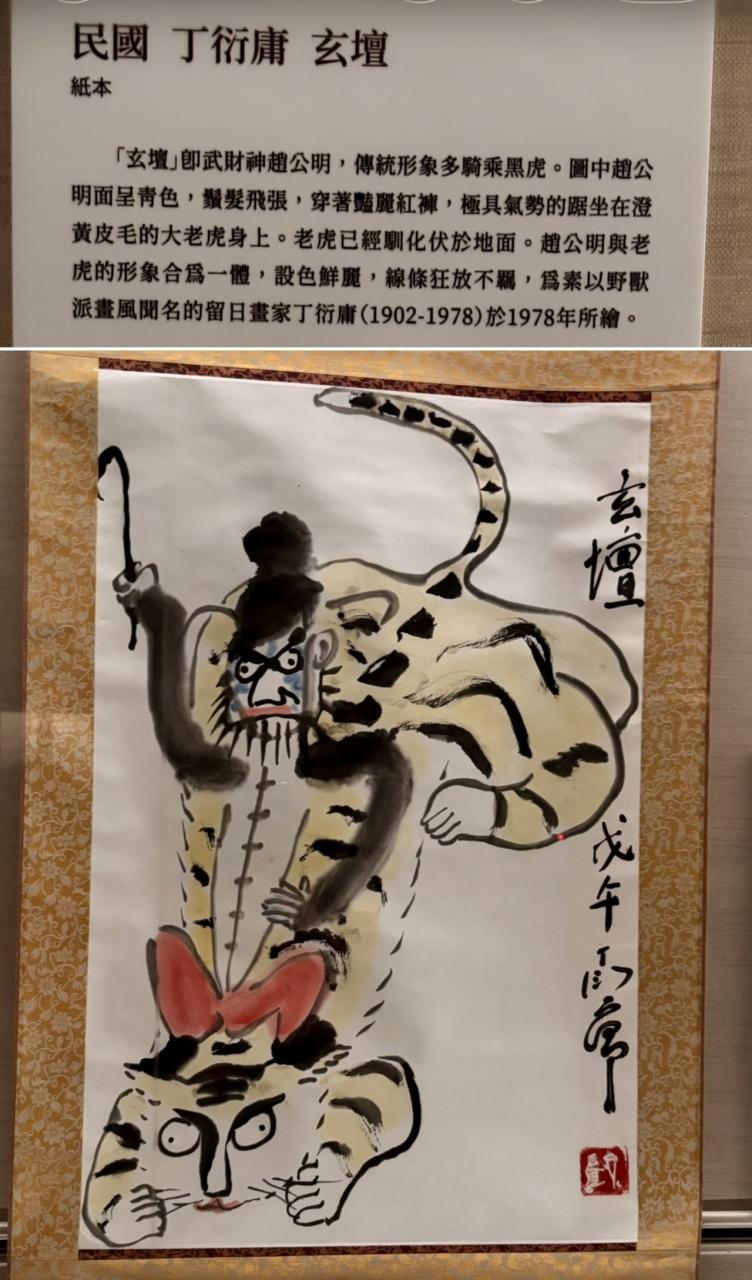 民國 丁衍庸 玄壇
紙本
「玄壇」卽武財神趙公明，傳統形象多騎乘黑虎。圖中趙公
明面呈靑色，鬚髮飛張，穿著豔麗紅褲，極具氣勢的踞坐在澄
黃皮毛的大老虎身上。老虎已經馴化伏於地面。趙公明與老
虎的形象合爲一體，設色鮮麗，線條狂放不羈，爲素以野獸
派畫風聞名的留日畫家丁衍庸（1902-1978）於1978年所繪。
玄壇
戊午